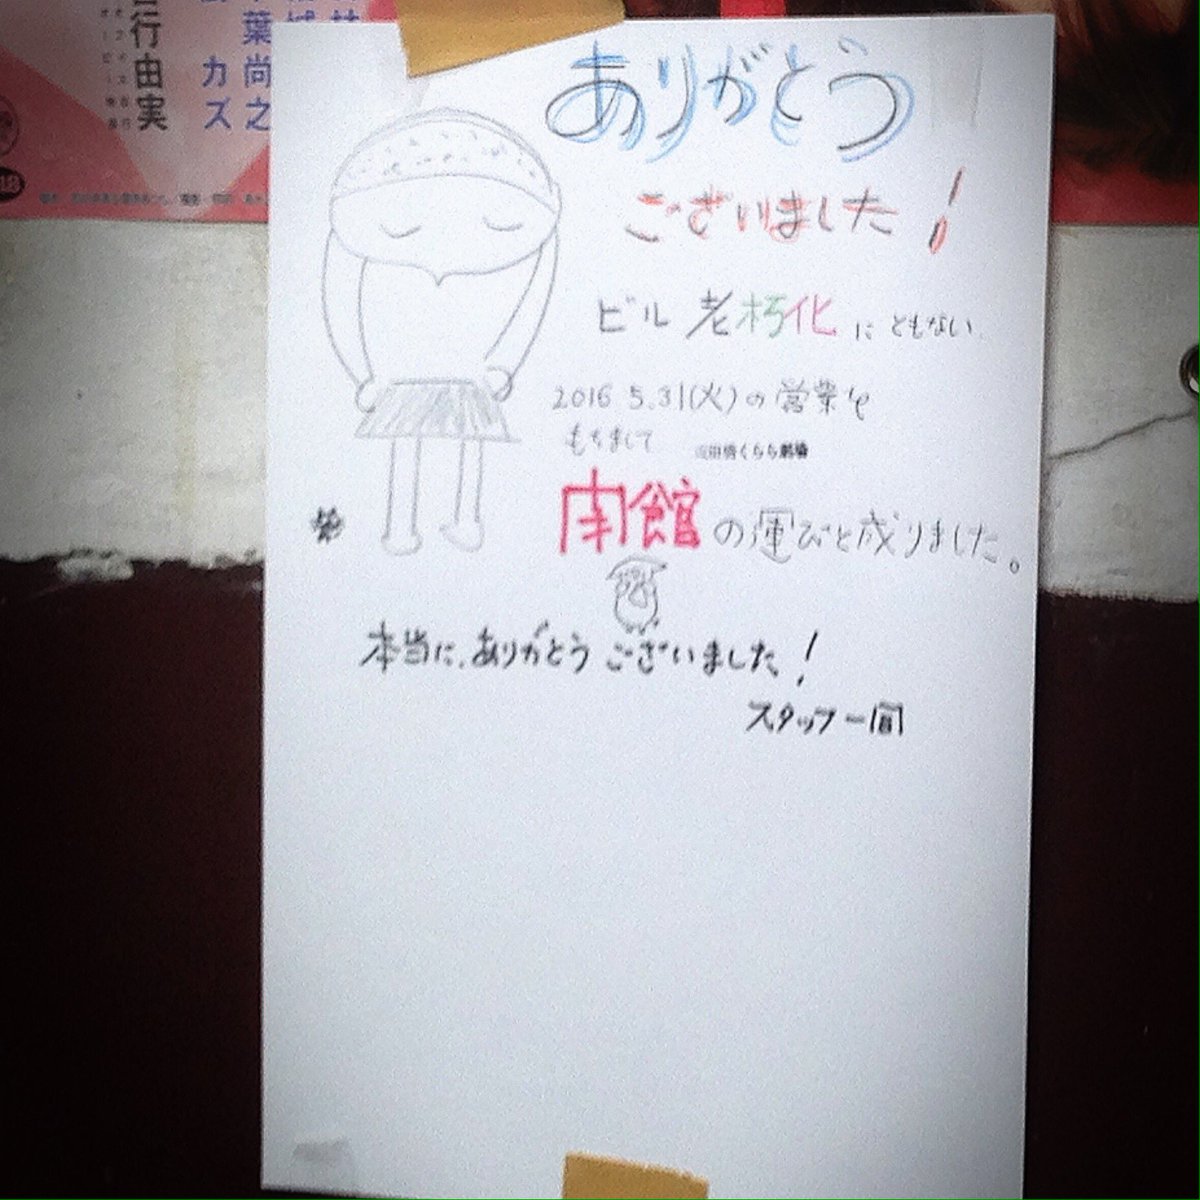 行由実
葉尚之
カズ
ありがとう
ございました!
ビル老朽化にともない
2016 5.31(火)の営業を
もちまして
くらら劇場
閉館の運びと成りました。
本当に、ありがとうございました!
スタッフ一同